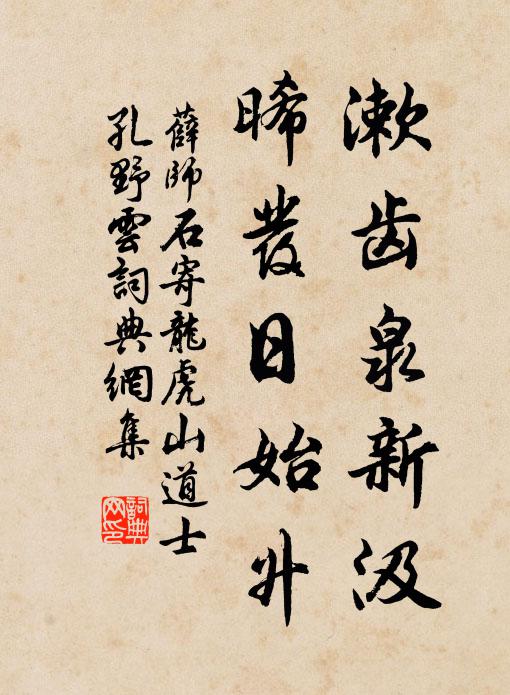 漱齿泉新汲
晞發日始升
薛師石寄龍虎山道士
孔野雲詞典網集
詞典网印